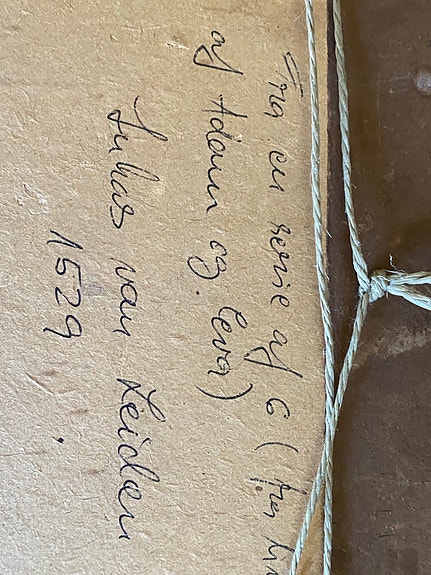 Fra en serie af 6 (
af Adam og Eva)
Lukas van Leiden
1529.